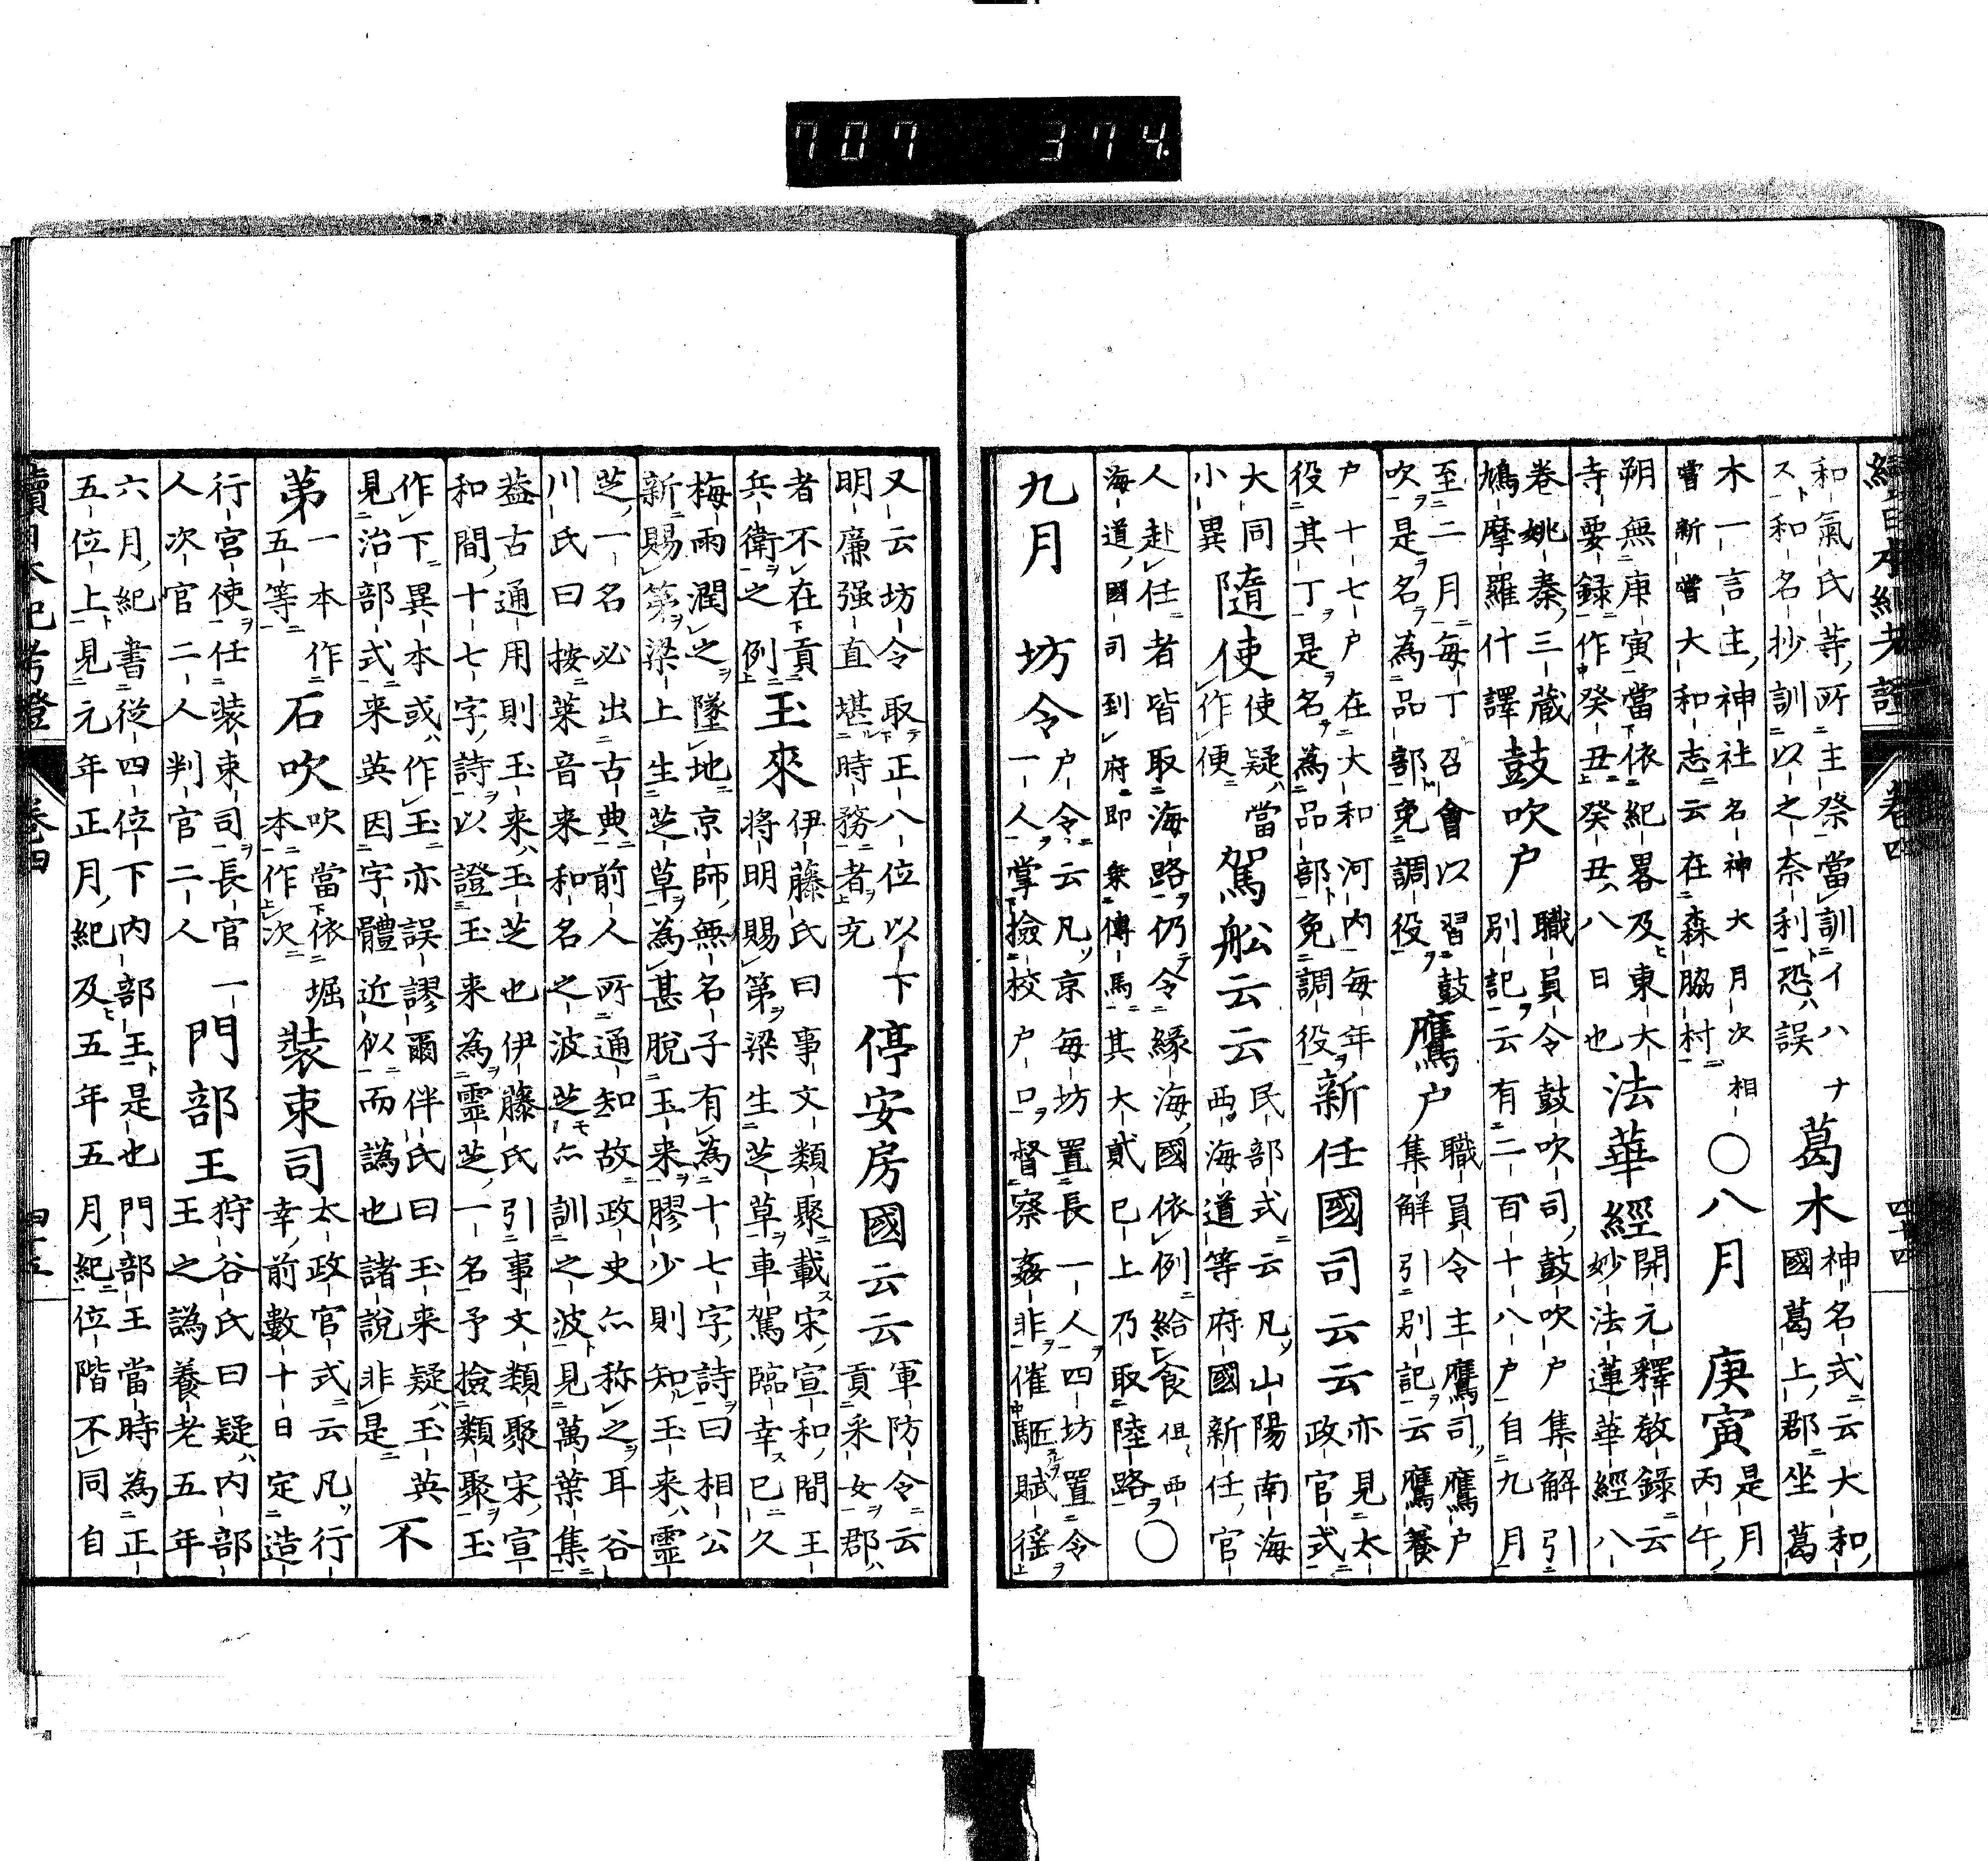 707 374
續日本紀考證 卷四 四十四
和氣氏等所主祭當訓イハナ
スト和名抄訓以之奈利恐誤
葛木
神名式云大和
國葛上郡坐葛
木一言主神社名神大月次相
嘗新嘗大和志云在森脇村
○八月 庚寅
是月
丙午
朔無庚寅當依紀畧及東大
寺要録作癸丑癸丑八日也
法華經
開元釋教錄云
妙法蓮華經八
卷姚秦三藏
鳩摩羅什譯
鼓吹户
職員令鼓吹司鼓吹户集解引
別記云有二百十八户自九月
至二月每丁召會以習鼓
吹是名為品部免調役
鷹户
職員令主鷹司鷹户
集解引別記云鷹養
户十七户在大和河内每年
役其丁是名為品部免調役
新任國司云云
亦見太
政官式
大同
小異
隨使
使疑當
作便
駕舩云云
民部式云凡山陽南海
西海道等府國新任官
人赴任者皆取海路仍令緣海國依例給食但西
海道國司到府即乘傳馬其大貳已上乃取陸路○
九月 坊令
户令云凡京每坊置長一人四坊置令
一人掌撿校户口督察姦非催駈賦徭
又云坊令取正八位以下
明廉强直堪時務者充
停安房國云云
軍防令云
貢采女郡
者不在貢
兵衛之例
玉來
伊藤氏曰事文類聚載宋宣和間王
將明賜第梁生芝草車駕臨幸已久
梅雨潤之墜地京師無名子有為十七字詩曰相公
新賜第梁上生芝草為甚脫玉来膠少則知玉来靈
芝一名必出古典前人所通知故政史亦称之耳谷
川氏曰按葉音来和名之波芝亦訓之波見萬葉集
葢古通用則玉来玉芝也伊藤氏引事文類聚宋宣
和間十七字詩以證玉来為靈芝一名予撿類聚玉
作下異本或作玉亦誤謬爾伴氏曰玉来疑玉英
見治部式来英因字體近似而譌也諸說非是
不
第
一本作
五等
石吹
吹當依堀
本作次
裝束司
太政官式云凡行
幸前數十日定造
行宮使任裝束司長官一
人次官二人判官二人
門部王
狩谷氏曰疑内部
王之譌養老五年
六月紀書從四位下内部王是也門部王當時為正
五位上見元年正月紀及五年五月紀位階不同自
續日本紀考證 卷四 四十五